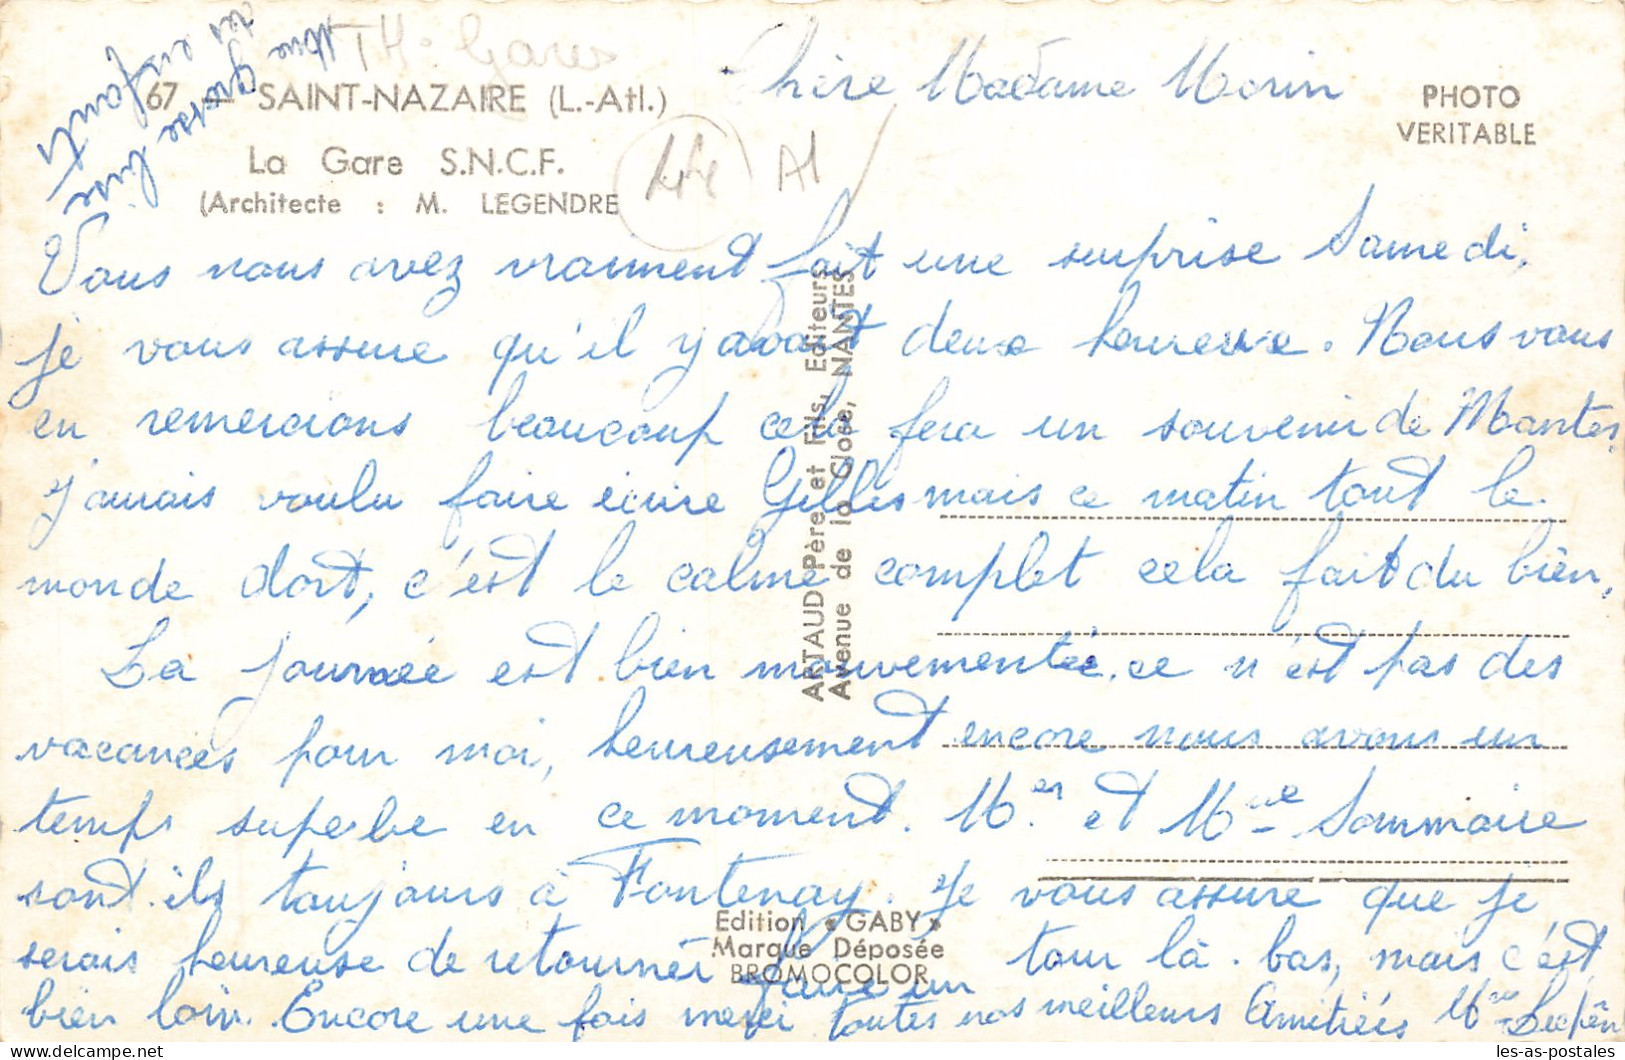 TH. Gares
67 — SAINT-NAZAIRE (L.-Atl.)
La Gare S.N.C.F.
(Architecte : M. LEGENDRE
44 A1
PHOTO
VERITABLE
Une grosse bise
des enfants
Chère Madame Morin
Vous nous avez vraiment fait une surprise Samedi,
je vous assure qu'il y avait deux heureuse. Nous vous
en remercions beaucoup cela fera un souvenir de Nantes,
j'aurais voulu faire écrire Gilles mais ce matin tout le
monde dort, c'est le calme complet cela fait du bien,
La journée est bien mouvementée. ce n'est pas des
vacances pour moi, heureusement encore nous avons un
temps superbe en ce moment. Mer et Mme Sommaire
sont-ils toujours à Fontenay. Je vous assure que je
serais heureuse de retourner faire un tour là-bas, mais c'est
bien loin. Encore une fois merci toutes nos meilleurs Amitiés Mme
ARTAUD Père et Fils, Editeurs
Avenue de la Close, NANTES
Edition « GABY »
Marque Déposée
BROMOCOLOR
les-as-postales.com